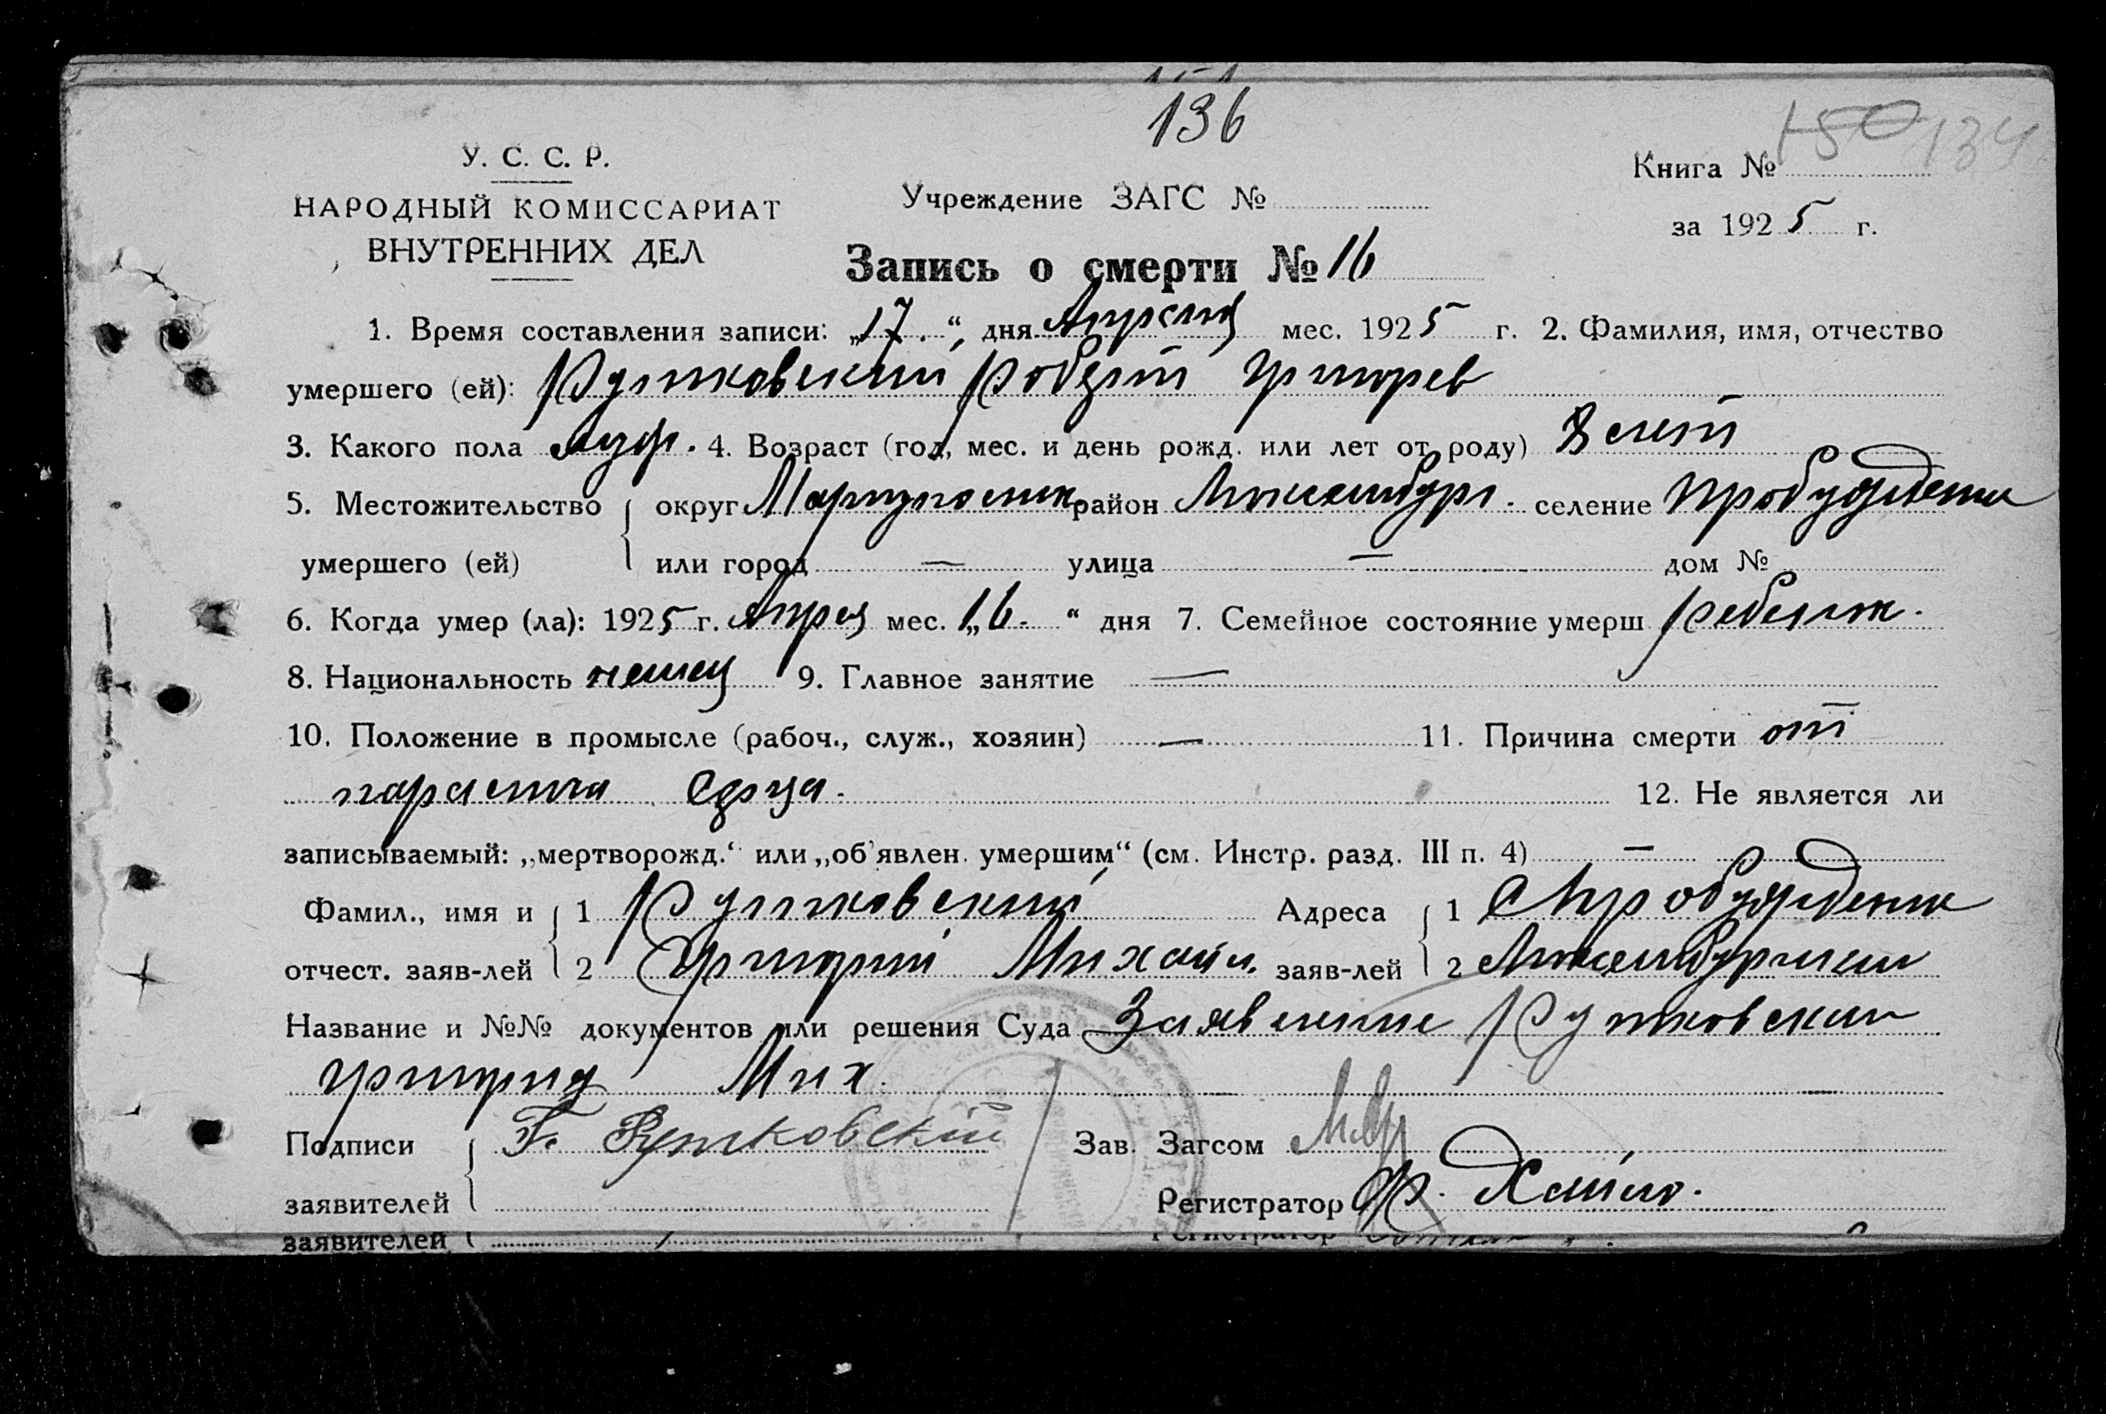 136
У. С. С. Р.
НАРОДНЫЙ КОМИССАРИАТ
ВНУТРЕННИХ ДЕЛ
Учреждение ЗАГС №
Книга № 150 134
за 1925 г.
Запись о смерти № 16
1. Время составления записи: „17“, дня Апреля мес. 1925 г. 2. Фамилия, имя, отчество
умершего (ей): Рутковский Роберт Григорев
3. Какого пола муж. 4. Возраст (год, мес. и день рожд. или лет от роду) 8 лет
5. Местожительство округ Мариуполск район Люксембург. селение Пробуждения
умершего (ей) или город — улица — дом №
6. Когда умер (ла): 1925 г. Апреля мес. „16.“ дня 7. Семейное состояние умерш ребенок.
8. Национальность немец 9. Главное занятие —
10. Положение в промысле (рабоч., служ., хозяин) — 11. Причина смерти от
паралича сердца.
12. Не является ли
записываемый: „мертворожд.“ или „об'явлен. умершим“ (см. Инстр. разд. III п. 4) —
Фамил., имя и 1 Рутковский Адреса 1 с Пробуждения
отчест. заяв-лей 2 Григорий Михайл. заяв-лей 2 Люксембургский
Название и №№ документов или решения Суда Заявление Рутковский
Григория Мих.
Подписи Г. Рутковский Зав. Загсом
заявителей Регистратор
заявителей Регистратор